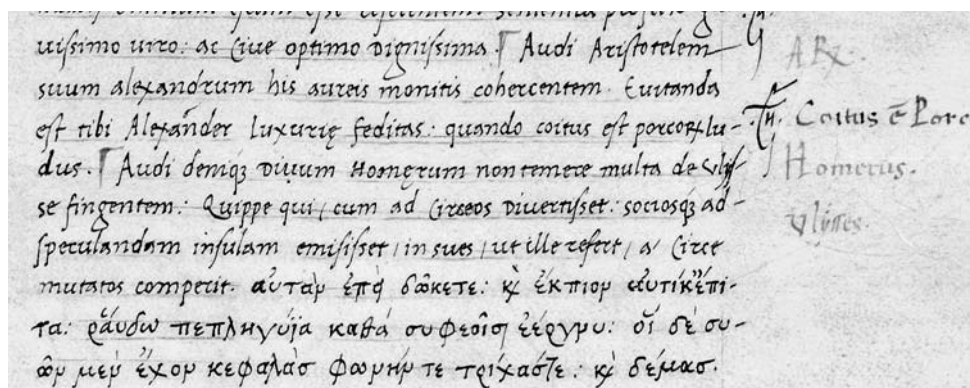 uissimo uiro: ac Ciue optimo Dignissima. Audi Aristotelem
suum alexandrum his aureis monitis cohercentem. Euitanda
est tibi Alexãnder luxurię feditas: quando coitus est porcoꝝ lu-
dus. Audi demiqꝫ Diuum Homęrum non temere multa de Vlis
se fingentem: Quippe qui, cum ad Circeos Diuertisset: sociosqꝫ ad
speculandam insulam emisisset, in sues, ut ille refert, a Circe
mutatos comperit. αυταρ ἐπει δῶκετε: ϗ ἔκπιον αυτίκἔπι-
τα: ῥάυδω πεπληγύϊα κατά συφεοῖσι ἐέργνυ: οἵ δὲ συ-
ῶν μεν ἔχον κεφαλὰσ φωνήν τε τρίχαστε: ϗ δέμασ.
ARx.
Coitus ẽ Porc
Homerus.
Vlysses.